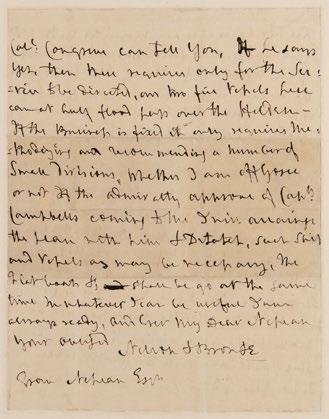 Colˡ: Congreve can tell You, If he says
Yes, then there requires only for the Ser-
vice to be directed, our fire Vessels here
can at half flood pass over the
If the Business is fixed it only requires Me-
thodizing and recommending a number of
Small Divisions, Whether I am off Goree
or not If the Admiralty approve of Capᵗ:
Campbells coming to the
the plan with him & Dispatch, such Ships
and Vessels as may be necessary, The
Flat boats &c shall be go at the same
time In whatever I can be useful I am
always ready, and Ever My Dear Nepean
Your obliged
Nelson & Bronte
Evan Nepean Esqʳ